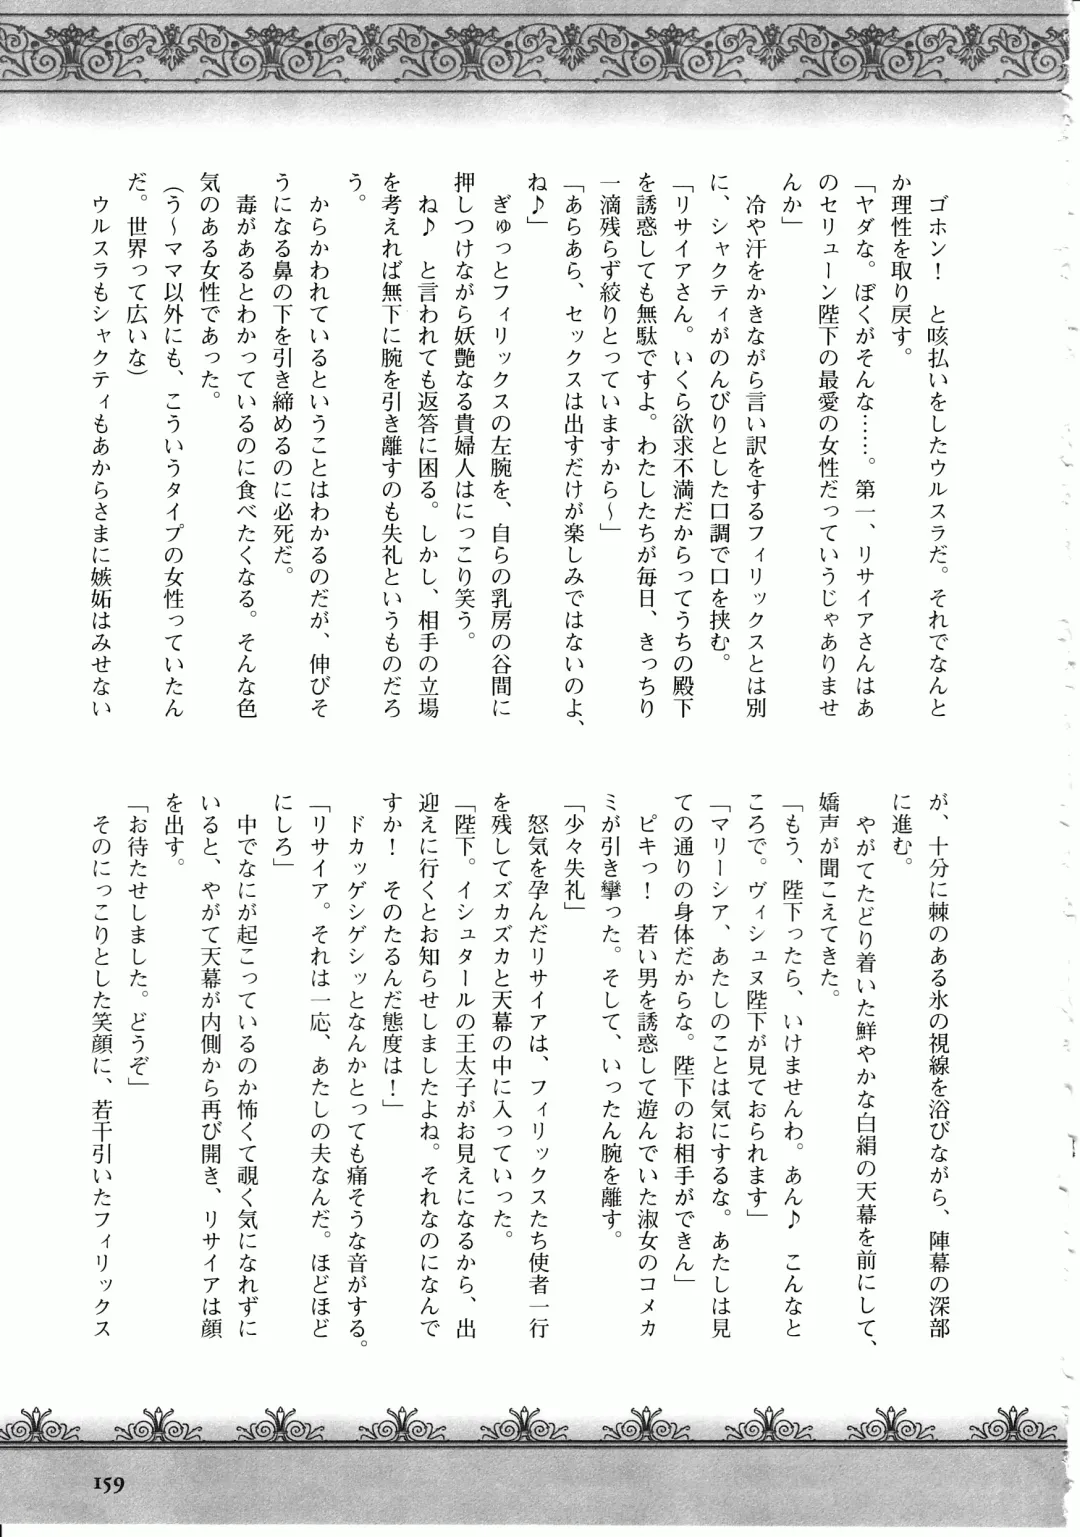 ゴホン！　と咳払いをしたウルスラだ。それでなんと
か理性を取り戻す。
「ヤダな。ぼくがそんな……。第一、リサイアさんはあ
のセリューン陛下の最愛の女性だっていうじゃありませ
んか」
冷や汗をかきながら言い訳をするフィリックスとは別
に、シャクティがのんびりとした口調で口を挟む。
「リサイアさん。いくら欲求不満だからってうちの殿下
を誘惑しても無駄ですよ。わたしたちが毎日、きっちり
一滴残らず絞りとっていますから～」
「あらあら、セックスは出すだけが楽しみではないのよ、
ね♪」
ぎゅっとフィリックスの左腕を、自らの乳房の谷間に
押しつけながら妖艶なる貴婦人はにっこり笑う。
ね♪　と言われても返答に困る。しかし、相手の立場
を考えれば無下に腕を引き離すのも失礼というものだろ
う。
からかわれているということはわかるのだが、伸びそ
うになる鼻の下を引き締めるのに必死だ。
毒があるとわかっているのに食べたくなる。そんな色
気のある女性であった。
（う～ママ以外にも、こういうタイプの女性っていたん
だ。世界って広いな）
ウルスラもシャクティもあからさまに嫉妬はみせない
が、十分に棘のある氷の視線を浴びながら、陣幕の深部
に進む。
やがてたどり着いた鮮やかな白絹の天幕を前にして、
嬌声が聞こえてきた。
「もう、陛下ったら、いけませんわ。あん♪　こんなと
ころで。ヴィシュヌ陛下が見ておられます」
「マリーシア、あたしのことは気にするな。あたしは見
ての通りの身体だからな。陛下のお相手ができん」
ピキっ！　若い男を誘惑して遊んでいた淑女のコメカ
ミが引き攣った。そして、いったん腕を離す。
「少々失礼」
怒気を孕んだリサイアは、フィリックスたち使者一行
を残してズカズカと天幕の中に入っていった。
「陛下。イシュタールの王太子がお見えになるから、出
迎えに行くとお知らせしましたよね。それなのになんで
すか！　そのたるんだ態度は！」
ドカッゲシゲシッとなんかとっても痛そうな音がする。
「リサイア。それは一応、あたしの夫なんだ。ほどほど
にしろ」
中でなにが起こっているのか怖くて覗く気になれずに
いると、やがて天幕が内側から再び開き、リサイアは顔
を出す。
「お待たせしました。どうぞ」
そのにっこりとした笑顔に、若干引いたフィリックス
159